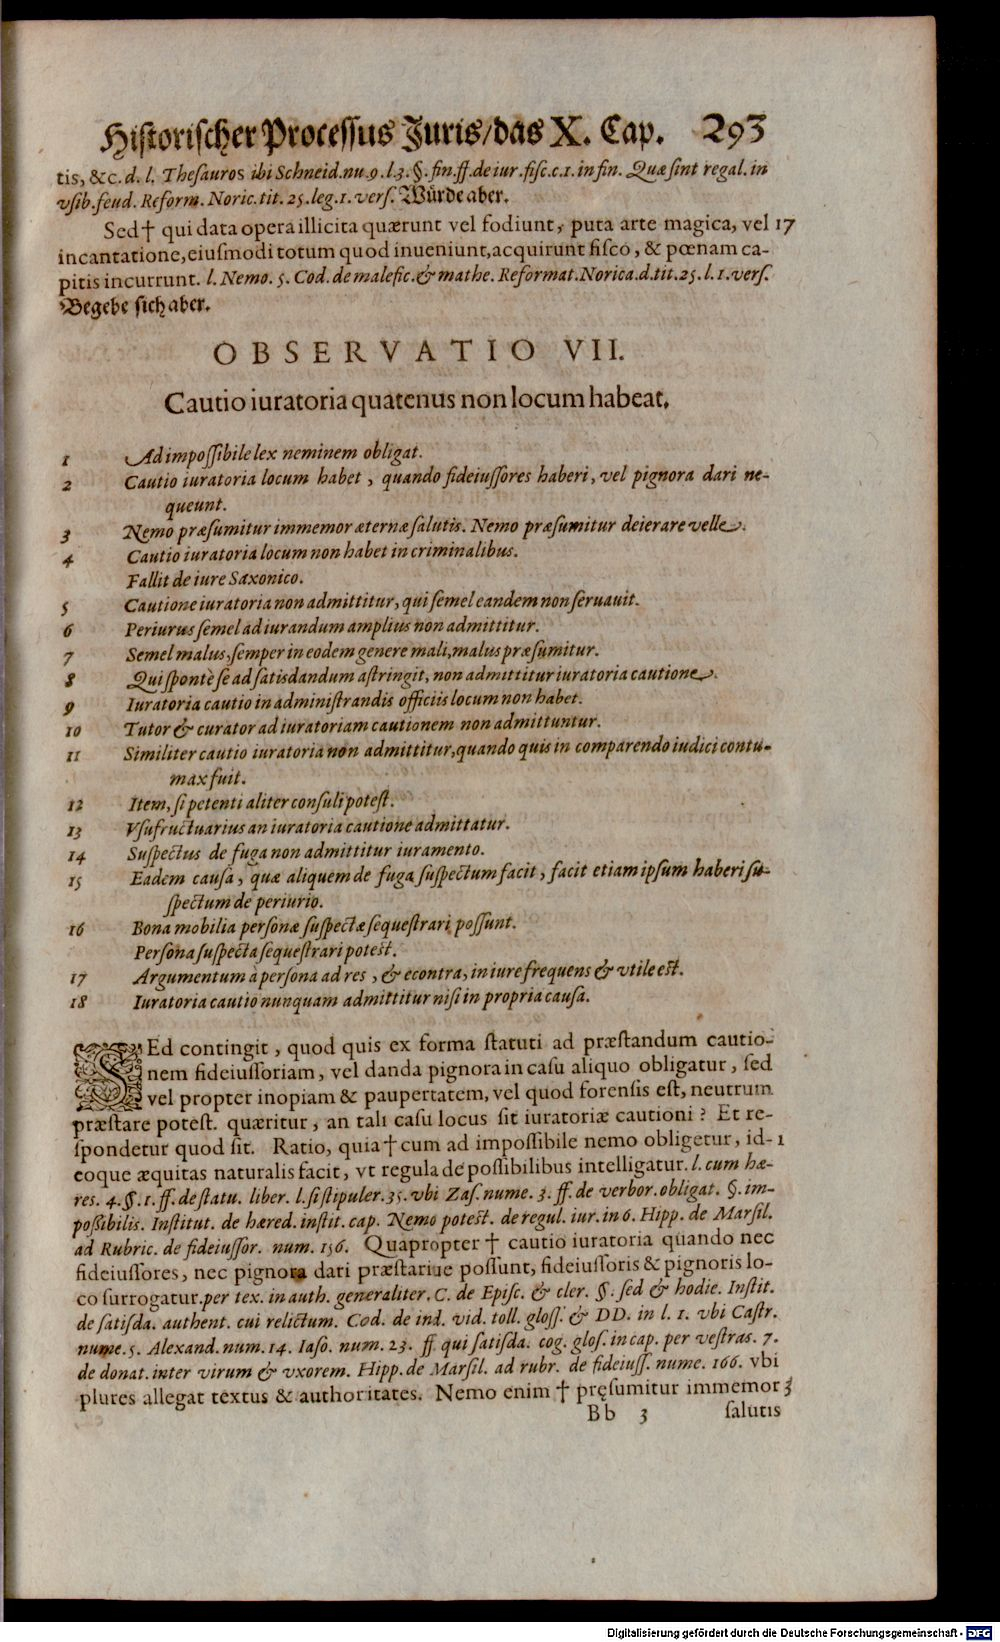 Historischer Processus Juris/das X. Cap. 293
tis, &c. d. l. Thesauros ibi Schneid. nu. 9. l. 3. §. fin. ff. de iur. fisc. c. 1. in fin. Quæ sint regal. in
vsib. feud. Reform. Noric. tit. 25. leg. 1. vers. Würde aber.
Sed † qui data opera illicita quærunt vel fodiunt, puta arte magica, vel 17
incantatione, eiusmodi totum quod inueniunt, acquirunt fisco, & pœnam ca-
pitis incurrunt. l. Nemo. 5. Cod. de malefic. & mathe. Reformat. Norica. d. tit. 25. l. 1. vers.
Begebe sich aber.
OBSERVATIO VII.
Cautio iuratoria quatenus non locum habeat.
1 Ad impossibile lex neminem obligat.
2 Cautio iuratoria locum habet, quando fideiussores haberi, vel pignora dari ne-
queunt.
3 Nemo præsumitur immemor æternæ salutis. Nemo præsumitur deierare velle.
4 Cautio iuratoria locum non habet in criminalibus.
Fallit de iure Saxonico.
5 Cautione iuratoria non admittitur, qui semel eandem non seruauit.
6 Periurus semel ad iurandum amplius non admittitur.
7 Semel malus, semper in eodem genere mali, malus præsumitur.
8 Qui spontè se ad satisdandum astringit, non admittitur iuratoria cautione.
9 Iuratoria cautio in administrandis officiis locum non habet.
10 Tutor & curator ad iuratoriam cautionem non admittuntur.
11 Similiter cautio iuratoria non admittitur, quando quis in comparendo iudici contu-
max fuit.
12 Item, si petenti aliter consuli potest.
13 Vsufructuarius an iuratoria cautione admittatur.
14 Suspectus de fuga non admittitur iuramento.
15 Eadem causa, quæ aliquem de fuga suspectum facit, facit etiam ipsum haberi su-
spectum de periurio.
16 Bona mobilia personæ suspectæ sequestrari possunt.
Persona suspecta sequestrari potest.
17 Argumentum à persona ad res, & econtra, in iure frequens & vtile est.
18 Iuratoria cautio nunquam admittitur nisi in propria causa.
SEd contingit, quod quis ex forma statuti ad præstandum cautio-
nem fideiussoriam, vel danda pignora in casu aliquo obligatur, sed
vel propter inopiam & paupertatem, vel quod forensis est, neutrum
præstare potest. quæritur, an tali casu locus sit iuratoriæ cautioni? Et re-
spondetur quod sit. Ratio, quia † cum ad impossibile nemo obligetur, id- 1
eoque æquitas naturalis facit, vt regula de possibilibus intelligatur. l. cum hæ-
res. 4. §. 1. ff. de statu. liber. l. si stipuler. 35. vbi Zas. nume. 3. ff. de verbor. obligat. §. im-
possibilis. Institut. de hæred. instit. cap. Nemo potest. de regul. iur. in 6. Hipp. de Marsil.
ad Rubric. de fideiussor. num. 156. Quapropter † cautio iuratoria quando nec
fideiussores, nec pignora dari præstariue possunt, fideiussoris & pignoris lo-
co surrogatur. per tex. in auth. generaliter. C. de Episc. & cler. §. sed & hodie. Instit.
de satisda. authent. cui relictum. Cod. de ind. vid. toll. gloss. & DD. in l. 1. vbi Castr.
nume. 5. Alexand. num. 14. Iaso. num. 23. ff. qui satisda. cog. glos. in cap. per vestras. 7.
de donat. inter virum & vxorem. Hipp. de Marsil. ad rubr. de fideiuss. nume. 166. vbi
plures allegat textus & authoritates. Nemo enim † pręsumitur immemor 3
Bb 3 salutis
Digitalisierung gefördert durch die Deutsche Forschungsgemeinschaft - DFG